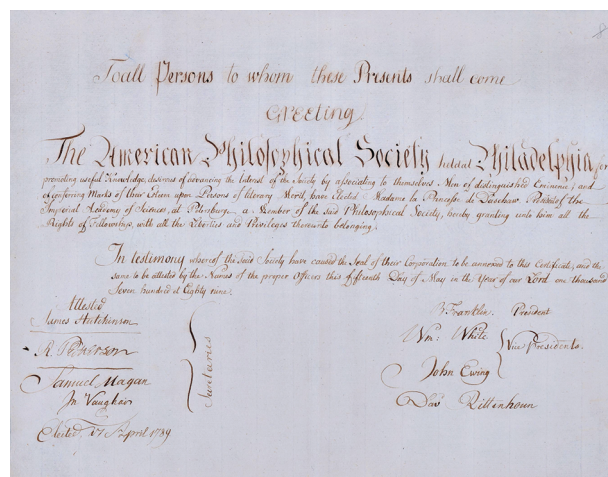 To all Persons to whom these Presents shall come
Greeting.
The American Philosophical Society held at Philadelphia for
promoting useful Knowledge, desirous of advancing the Interest of the Society by associating to themselves Men of distinguished Eminence, and
of conferring Marks of their Esteem upon Persons of literary Merit, have Elected Madame la Princesse de Daschaw
Imperial Academy of Sciences, at Petersburg a Member of the said Philosophical Society, hereby granting unto him all the
Rights of Fellowship, with all the Liberties and Privileges thereunto belonging.
In testimony whereof the said Society have caused the Seal of their Corporation to be annexed to this Certificate, and the
same to be attested by the Names of the proper Officers this fifteenth Day of May in the Year of our Lord one thousand
Seven hundred et Eighty nine.
Attested
James Hutchinson
R. Patterson
Samuel Magaw
Jn Vaughan
Secretaries
Elected 17 April 1789
B Franklin. President
Wm: White
Vice Presidents.
John Ewing
Dav Rittenhoun